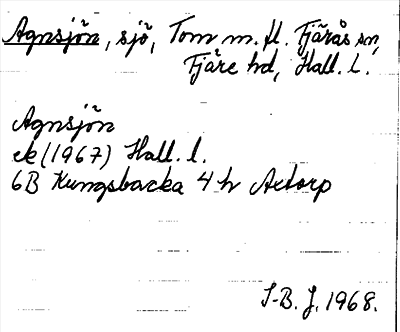 Agnsjön, sjö, Tom m. fl. Fjärås sn,
Fjäre hd, Hall. l.
Agnsjön
ek (1967) Hall. l.
6B Kungsbacka 4 h Axtorp
S-B. J. 1968.